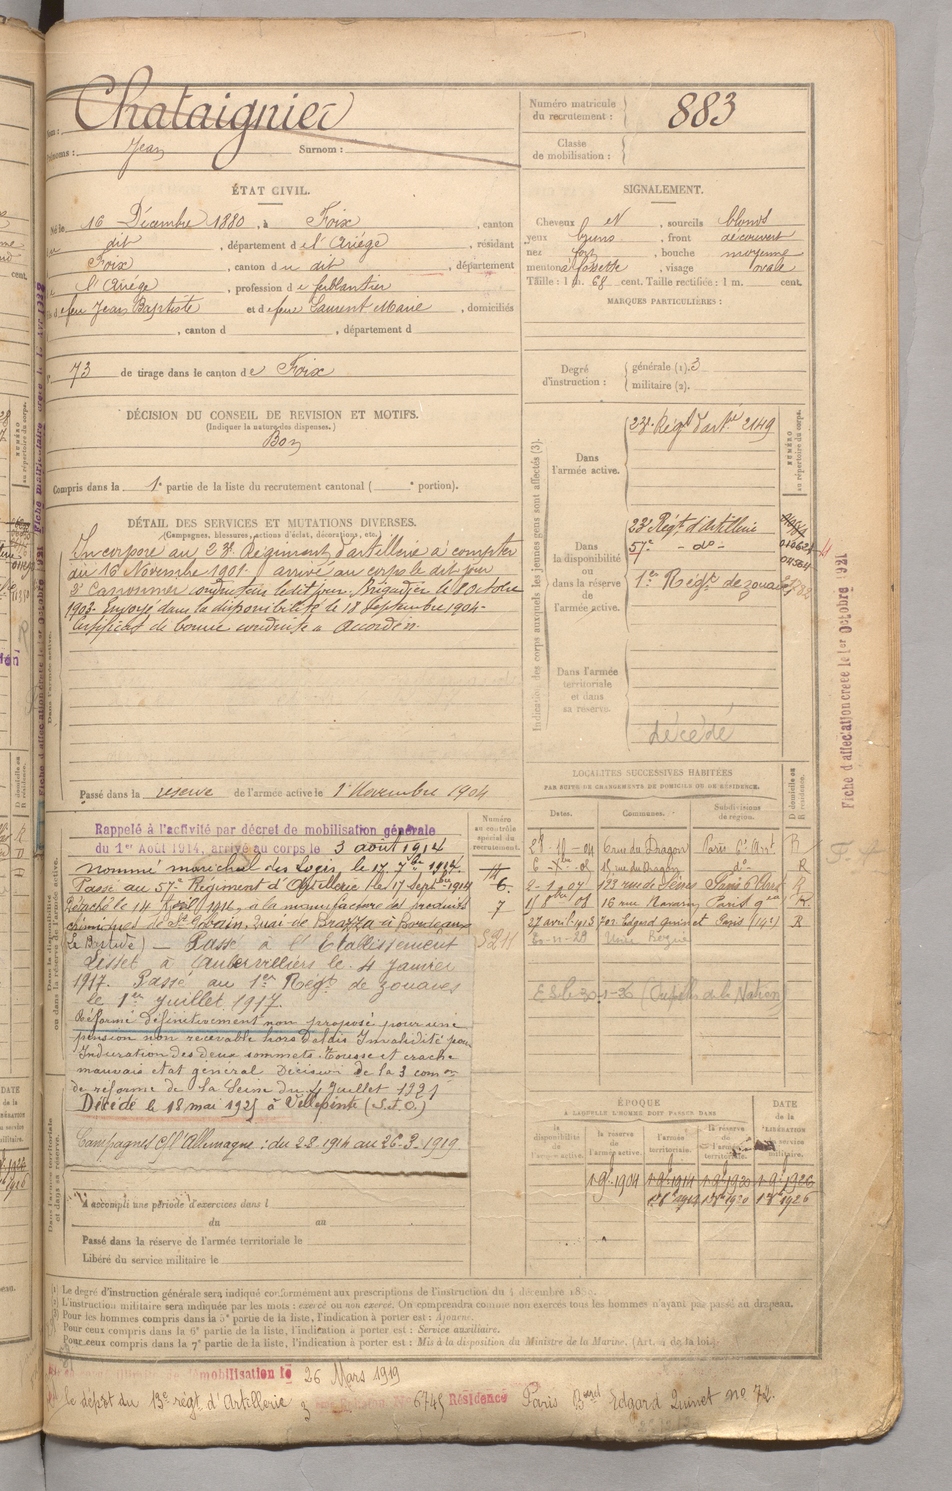 Nom : Chataignier
Prénoms : Jean Surnom :
Numéro matricule du recrutement : 883
Classe de mobilisation :
ÉTAT CIVIL.
Né le 16 Décembre 1880, à Foix, canton
dit, département de l'Ariège, résidant
Foix, canton du dit, département
l'Ariège, profession de ferblantier
feu Jean Baptiste et de feue Laurent Marie, domiciliés
, canton d , département d
73 de tirage dans le canton de Foix
SIGNALEMENT.
Cheveux et N, sourcils blonds
yeux bruns, front découvert
nez fort, bouche moyenne
menton à fossette, visage ovale
Taille : 1 m. 68 cent. Taille rectifiée : 1 m. cent.
MARQUES PARTICULIÈRES :
Degré d'instruction : générale (1). 3
militaire (2).
DÉCISION DU CONSEIL DE REVISION ET MOTIFS.
(Indiquer la nature des dispenses.)
Bon
Compris dans la 1e partie de la liste du recrutement cantonal ( e portion).
DÉTAIL DES SERVICES ET MUTATIONS DIVERSES.
(Campagnes, blessures, actions d'éclat, décorations, etc.)
Incorporé au 23e Régiment d'artillerie à compter
du 16 Novembre 1901. arrivé au corps le dit jour
2e Canonnier conducteur ledit jour, Brigadier le 8 Octobre
1903. Envoyé dans la disponibilité le 18 Septembre 1904.
Certificat de bonne conduite accordé.
Passé dans la réserve de l'armée active le 1er Novembre 1904
Indication des corps auxquels les jeunes gens sont affectés (3).
NUMÉRO au répertoire du corps.
Dans l'armée active.
23e Régt d'artie 2149
Dans la disponibilité ou dans la réserve de l'armée active.
23e Régt d'Artillerie
57e - do -
1er Régt de zouaves
Dans l'armée territoriale et dans sa réserve.
décédé
Fiche d'affectation créée le 1er Octobre 1921
Rappelé à l'activité par décret de mobilisation générale
du 1er Août 1914, arrivé au corps le 3 août 1914
nommé maréchal des Logis le 17 7bre 1914.
Passé au 57e Régiment d'Artillerie le 17 Septbre 1914
Détaché le 14 Avril 1916, à la manufacture des produits
chimiques de St Gobain, Quai de Brazza à Bordeaux
(La Bastide) — Passé à l'Etablissement
Lisset à Aubervilliers le 4 Janvier
1917. Passé au 1er Régt de zouaves
le 1er juillet 1917.
Réformé définitivement non proposé pour une
pension non recevable hors délais Invalidité pour
Induration des deux sommets. Tousse et crache
mauvais état général Décision de la 3 comon
de réforme de la Seine du 4 Juillet 1921
Décédé le 18 mai 1925 à Villepinte (S.&O.)
Campagnes C/ l'Allemagne : du 2 8 1914 au 26-3-1919
Numéro au contrôle spécial du recrutement.
6.
7
LOCALITÉS SUCCESSIVES HABITÉES
PAR SUITE DE CHANGEMENTS DE DOMICILE OU DE RÉSIDENCE.
Dates. Communes. Subdivisions de région. D domicile ou R résidence.
6 rue du Dragon Paris 6e Art R
rue du Dragon do R
2-1-07 123 rue de Sèvres Paris 6e R
16 rue Navarin Paris 9e R
27 avril 1913 72 Bd Edgard Quinet Paris (14e) R
(Pupille de la Nation)
ÉPOQUE
À LAQUELLE L'HOMME DOIT PASSER DANS
DATE de la LIBÉRATION du service militaire.
la disponibilité de l'armée active. la réserve de l'armée active. l'armée territoriale. la réserve de l'armée territoriale.
1-9bre-1904 1-9bre-1914 1-9bre-1920 1-9bre-1926
A accompli une période d'exercices dans l
du au
Passé dans la réserve de l'armée territoriale le
Libéré du service militaire le
(1) Le degré d'instruction générale sera indiqué conformément aux prescriptions de l'instruction du 4 décembre 18
(2) L'instruction militaire sera indiquée par les mots : exercé ou non exercé. On comprendra comme non exercés tous les hommes n'ayant pas passé au drapeau.
Pour les hommes compris dans la 5e partie de la liste, l'indication à porter est : Ajourné.
Pour ceux compris dans la 6e partie de la liste, l'indication à porter est : Service auxiliaire.
Pour ceux compris dans la 7e partie de la liste, l'indication à porter est : Mis à la disposition du Ministre de la Marine. (Art. 4 de la loi.)
démobilisation le 26 Mars 1919
le dépôt du 13e régt d'Artillerie No 6745 Résidence Paris Bard Edgard Quinet no 72.